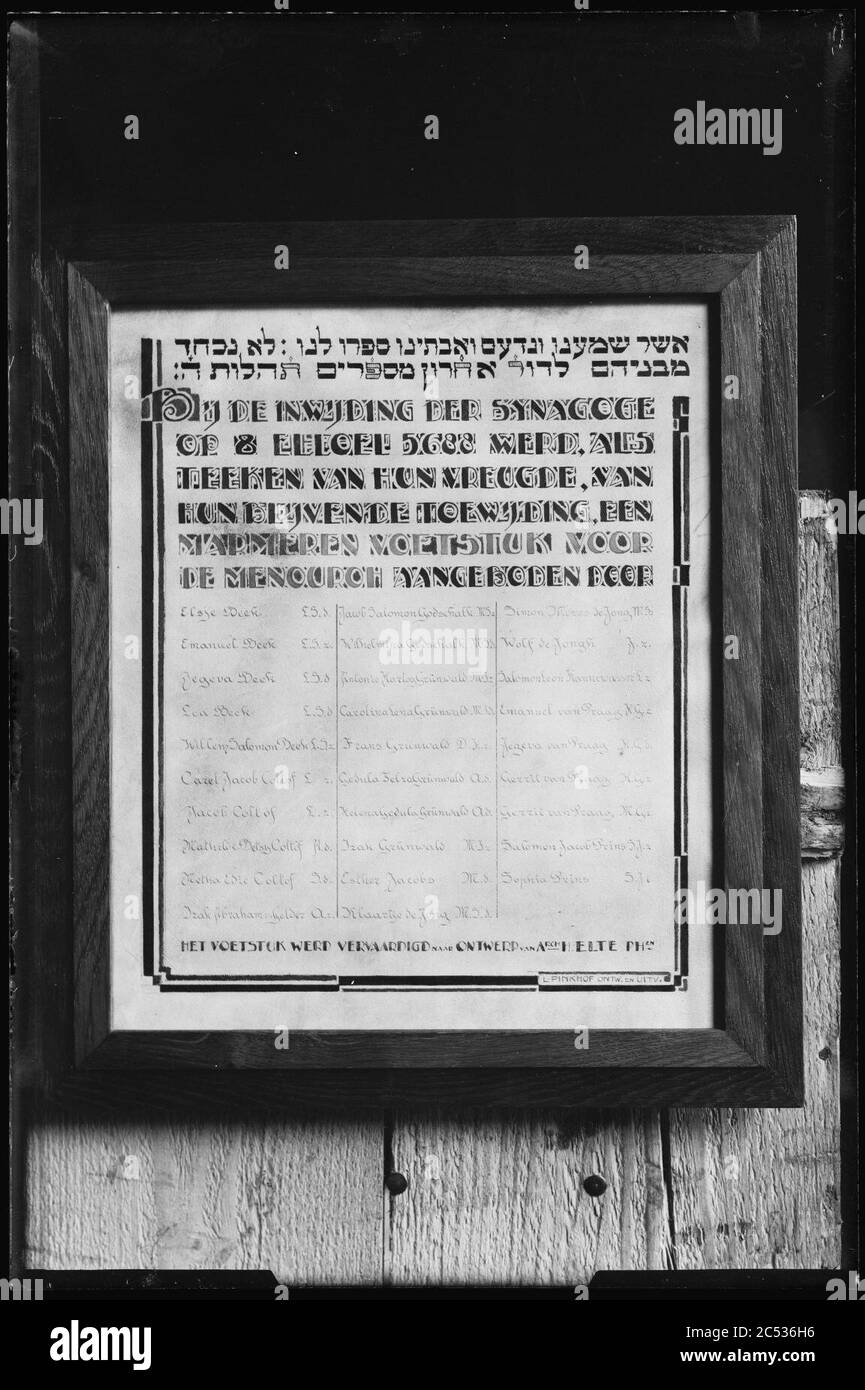 אשר שמענו ונדעם ואבתינו ספרו לנו : לא נכחד
מבניהם לדור אחרון מספרים תהלות ה':
BIJ DE INWIJDING DER SYNAGOGE
OP 8 ELLOEL 5688 WERD, ALS
TEEKEN VAN HUN VREUGDE, VAN
HUN BLIJVENDE TOEWIJDING, EEN
MARMEREN VOETSTUK VOOR
DE MENOUROH AANGEBODEN DOOR
Elsje Beek L.S.d. Jacob Salomon Godschalk M.S.z. Simon Mozes de Jong M.S.
Emanuel Beek L.S.z. Wilhelmina Godschalk M.S.d. Wolf de Jongh J.z.
Jegeva Beek L.S.d. Hartog Grünwald M.S.z.
Lea Beek L.S.d. Carolina Lena Grünwald M.S.d. Emanuel van Praag N.G.z.
Willem Salomon Beek L.S.z. Frans Grünwald D.H.z. Jegeva van Praag N.G.d.
Carel Jacob Coltof L. z. Gedula Grünwald A.d. Gerrit van Praag N.G.z.
Jacob Coltof L.z. Helena Gedula Grünwald A.d. Gerrit van Praag M.G.z.
Mathilde Betsy Coltof A.d. Izak Grünwald M.S.z. Salomon Jacob Prins S.J.z.
Metha Edie Coltof S.d. Esther Jacobs M.d. Sophia Prins
Izak Abraham Gelder A.z. Klaartje de Jong M.S.d.
HET VOETSTUK WERD VERVAARDIGD NAAR ONTWERP VAN ARCH. H. ELTE PHZN
L. PINKHOF ONTW. EN UITV.
alamy
Image ID: 2C536H6
www.alamy.com